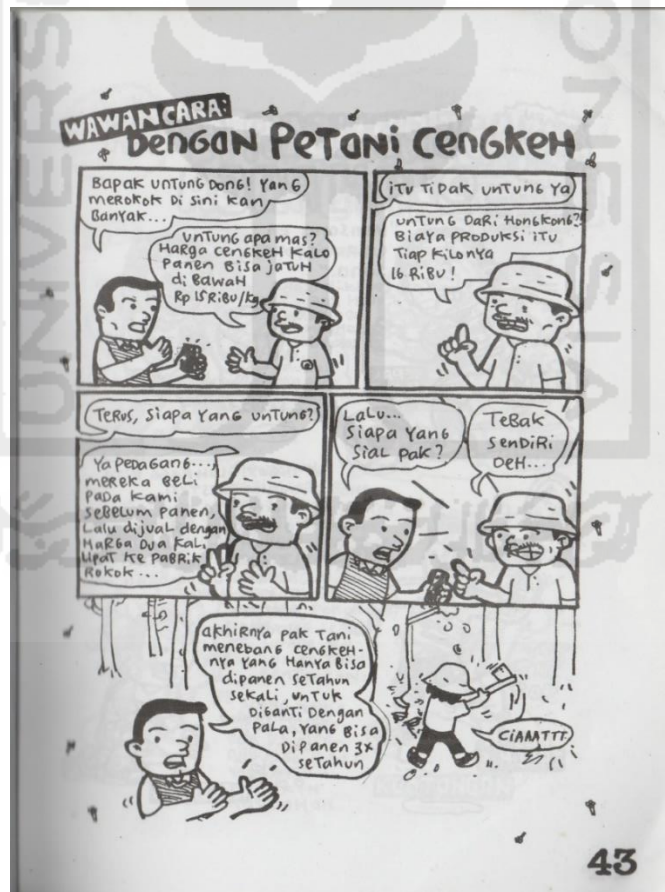 WAWANCARA:
DENGAN PETANI CENGKEH
BAPAK UNTUNG DONG! YANG
MEROKOK DI SINI KAN
BANYAK...
UNTUNG APA MAS?
HARGA CENGKEH KALO
PANEN BISA JATUH
di BAWAH
RP 15 RIBU/kg
iTU TIDAK UNTUNG YA
UNTUNG DARI HONGKONG?!
BIAYA PRODUKSI ITU
TIAP KILONYA
16 RIBU!
TERUS, SIAPA YANG UNTUNG?
YA PEDAGANG...,
MEREKA BELI
PADA KAMI
SEBELUM PANEN,
LALU diJUAL dENGAN
HARGA DUA KALI
LIPAT KE PABRIK
ROKOK...
LALU...
SIAPA YANG
SIAL PAK?
TEBAK
SENDIRI
DEH...
akhirnya pak Tani
menebang cengkeh-
nya yang Hanya Bisa
dipanen setahun
sekali, untuk
diganti dengan
pala, yang bisa
dipanen 3x
setahun
CIAAATTT
43
UNIVERS